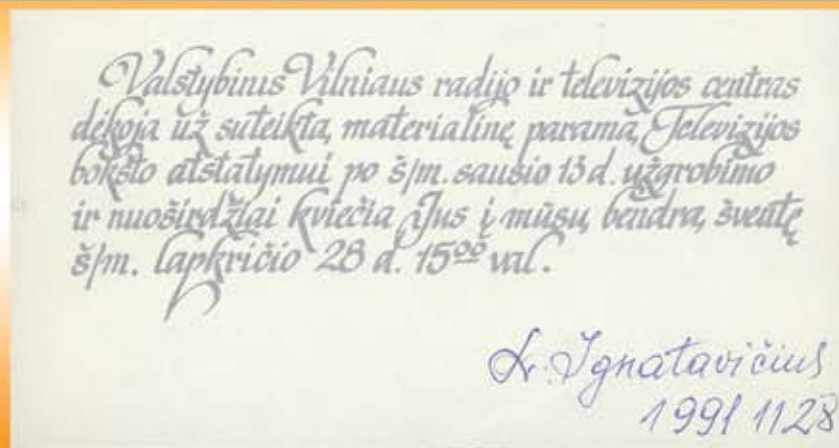 Valstybinis Vilniaus radijo ir televizijos centras
dėkoja už suteiktą materialinę paramą Televizijos
bokšto atstatymui po š/m. sausio 13 d. užgrobimo
ir nuoširdžiai kviečia Jus į mūsų bendrą šventę
š/m. lapkričio 28 d. 15⁰⁰ val.
Ignatavičius
1991 11 28